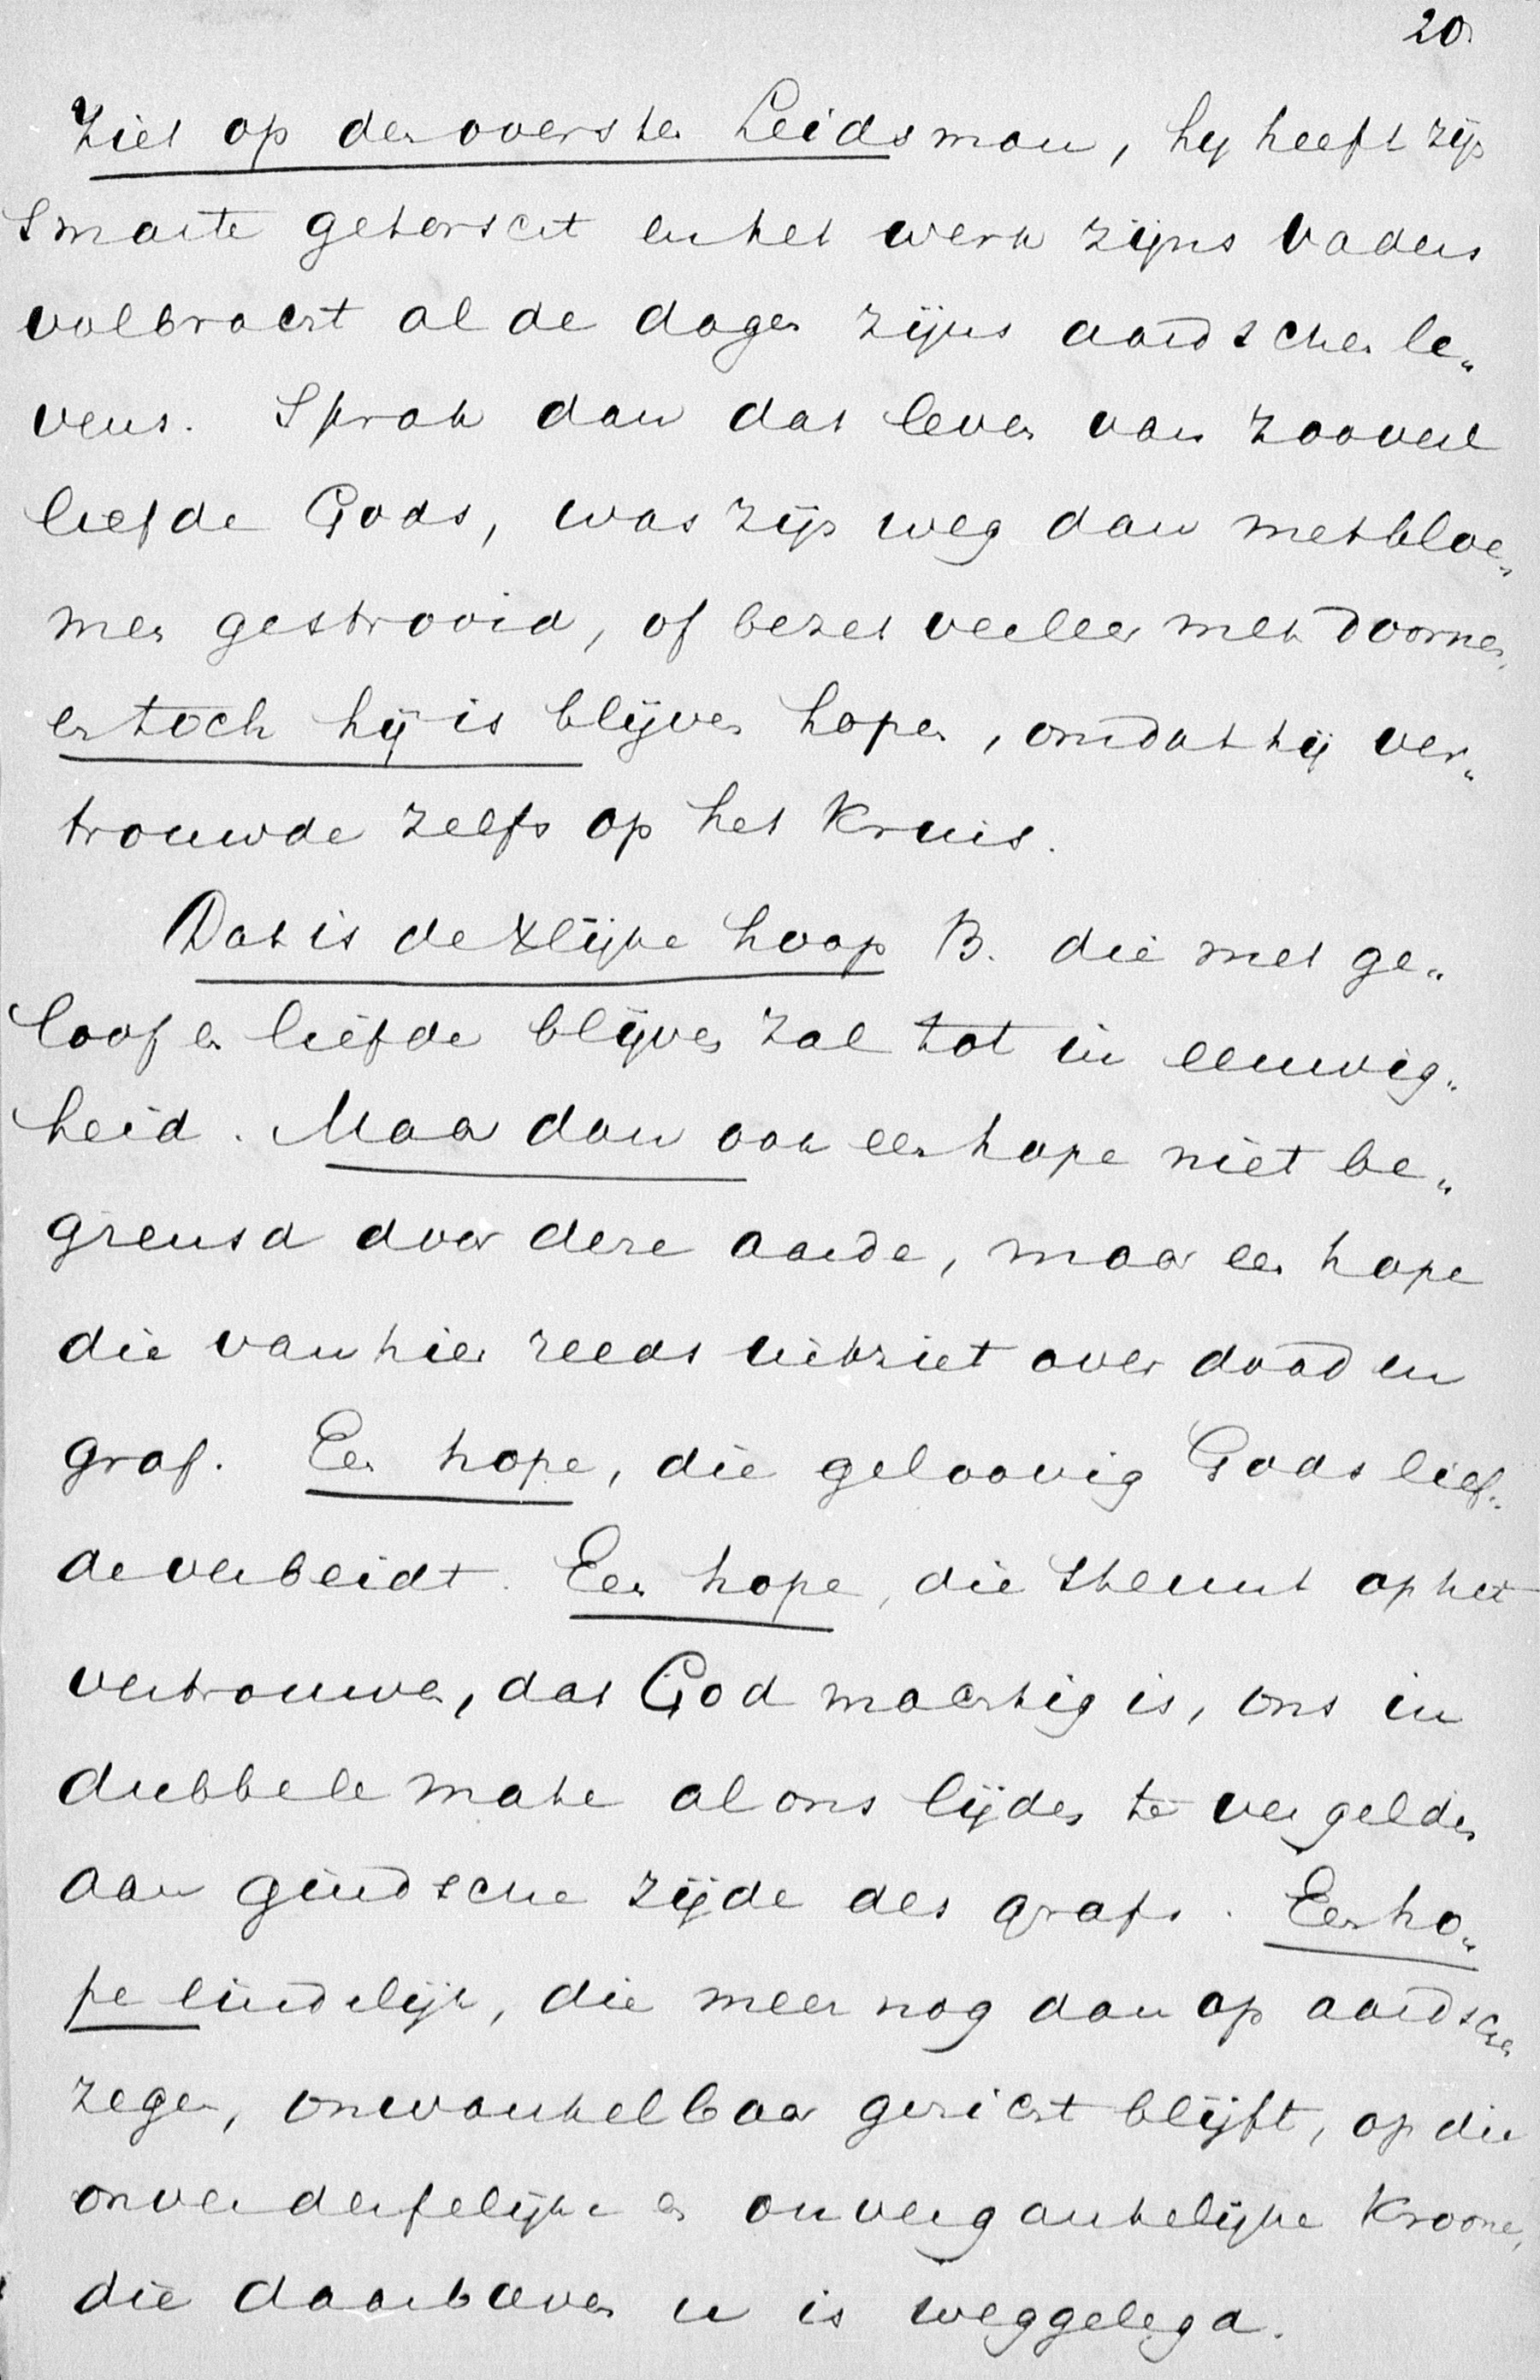 20.
Ziet op den oversten Leidsman, hy heeft zijn
smarte getorscht en het werk zijns Vaders
volbracht al de dagen zijns aardschen le„
vens. Sprak dan dat leven van zooveel
liefde Gods, was zijn weg dan met bloe„
men gestrooid, of bezet veeleer met doornen,
en toch hij is blijven hopen, omdat hij ver„
trouwde zelfs op het Kruis.
Dat is de Xlijke hoop B. die met ge„
loof en liefde blijven zal tot in eeuwig„
heid. Maar dan ook een hope niet be„
grensd door deze aarde, maar een hope
die van hier reeds uitziet over dood en
graf. Een hope, die geloovig Gods lief„
de verbeidt. Een hope, die steunt op het
vertrouwen, dat God machtig is, ons in
dubbele mate al ons lijden te vergelden
aan gindsche zijde des grafs. Een ho„
pe eindelijk, die meer nog dan op aardschen
zegen, onwankelbaar gericht blijft, op die
onverderfelijke en onvergankelijke Kroone,
die daarboven u is weggelegd.